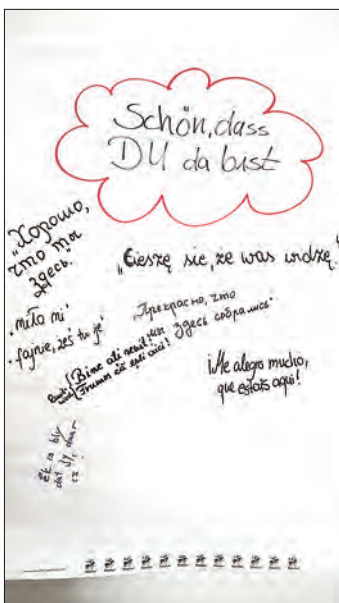 Schön, dass
DU da bist
„Хорошо,
что ты
здесь.
„Cieszę się, że was widzę."
„miło mi"
„fajnie, żeś tu je"
„Прекрасно, что
мы здесь собрались"
Bine ați venit!
Frumos că ești aici!
¡Me alegro mucho,
que estáis aquí!
Ek is bly
dat jy daar
is!